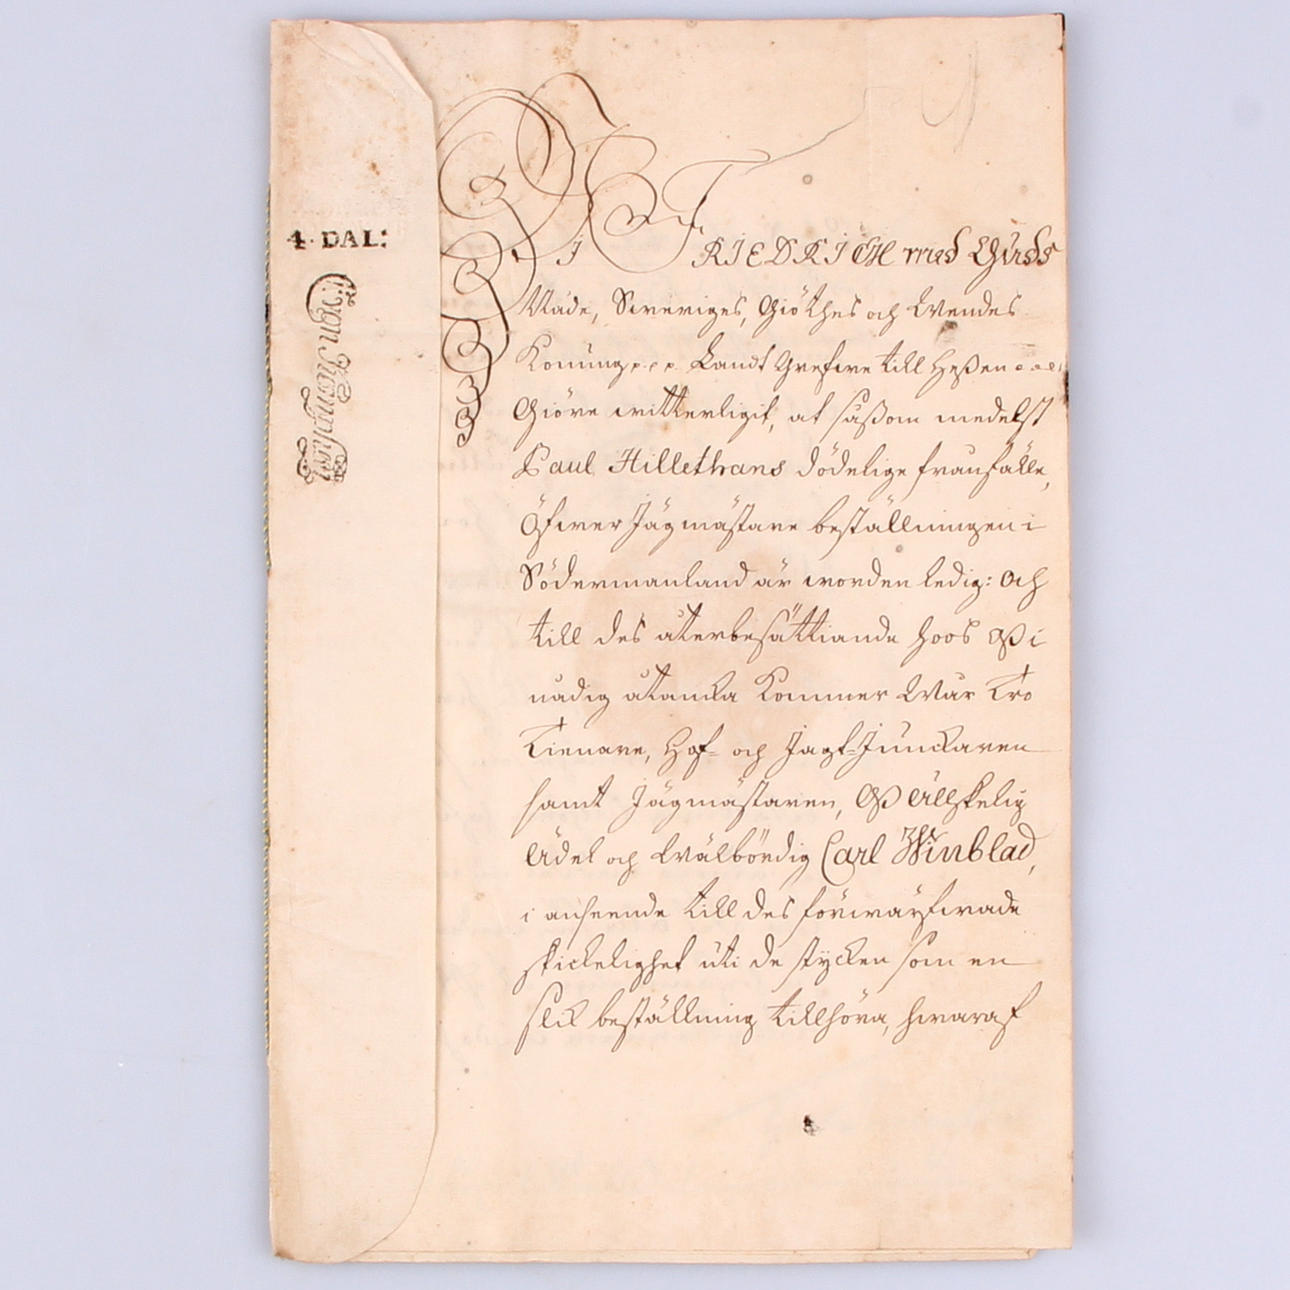 4. DAL:
Wi FRIEDRICH med Gudz
Nåde, Sweriges, Giöthes och Wendes
Konung p.p.p. Landt Grefwe till Heßen p.p.p.
Giöre witterligit, at såßom medelst
Paul Hillethans dödelige frånfälle,
Öfwer Jägmästare beställningen i
Södermanland är worden ledig: och
till des återbesättiande hoos Oß i
nådig åtancka kommer Wår Tro
Tienare, Hof- och Jagt-Junckaren
samt Jägmästaren, Oß Älskelig
Ädel och Wälbördig Carl Winblad,
i anseende till des förwärfwade
skickelighet uti de stycken som en
slik beställning tillhöra, hwaraf